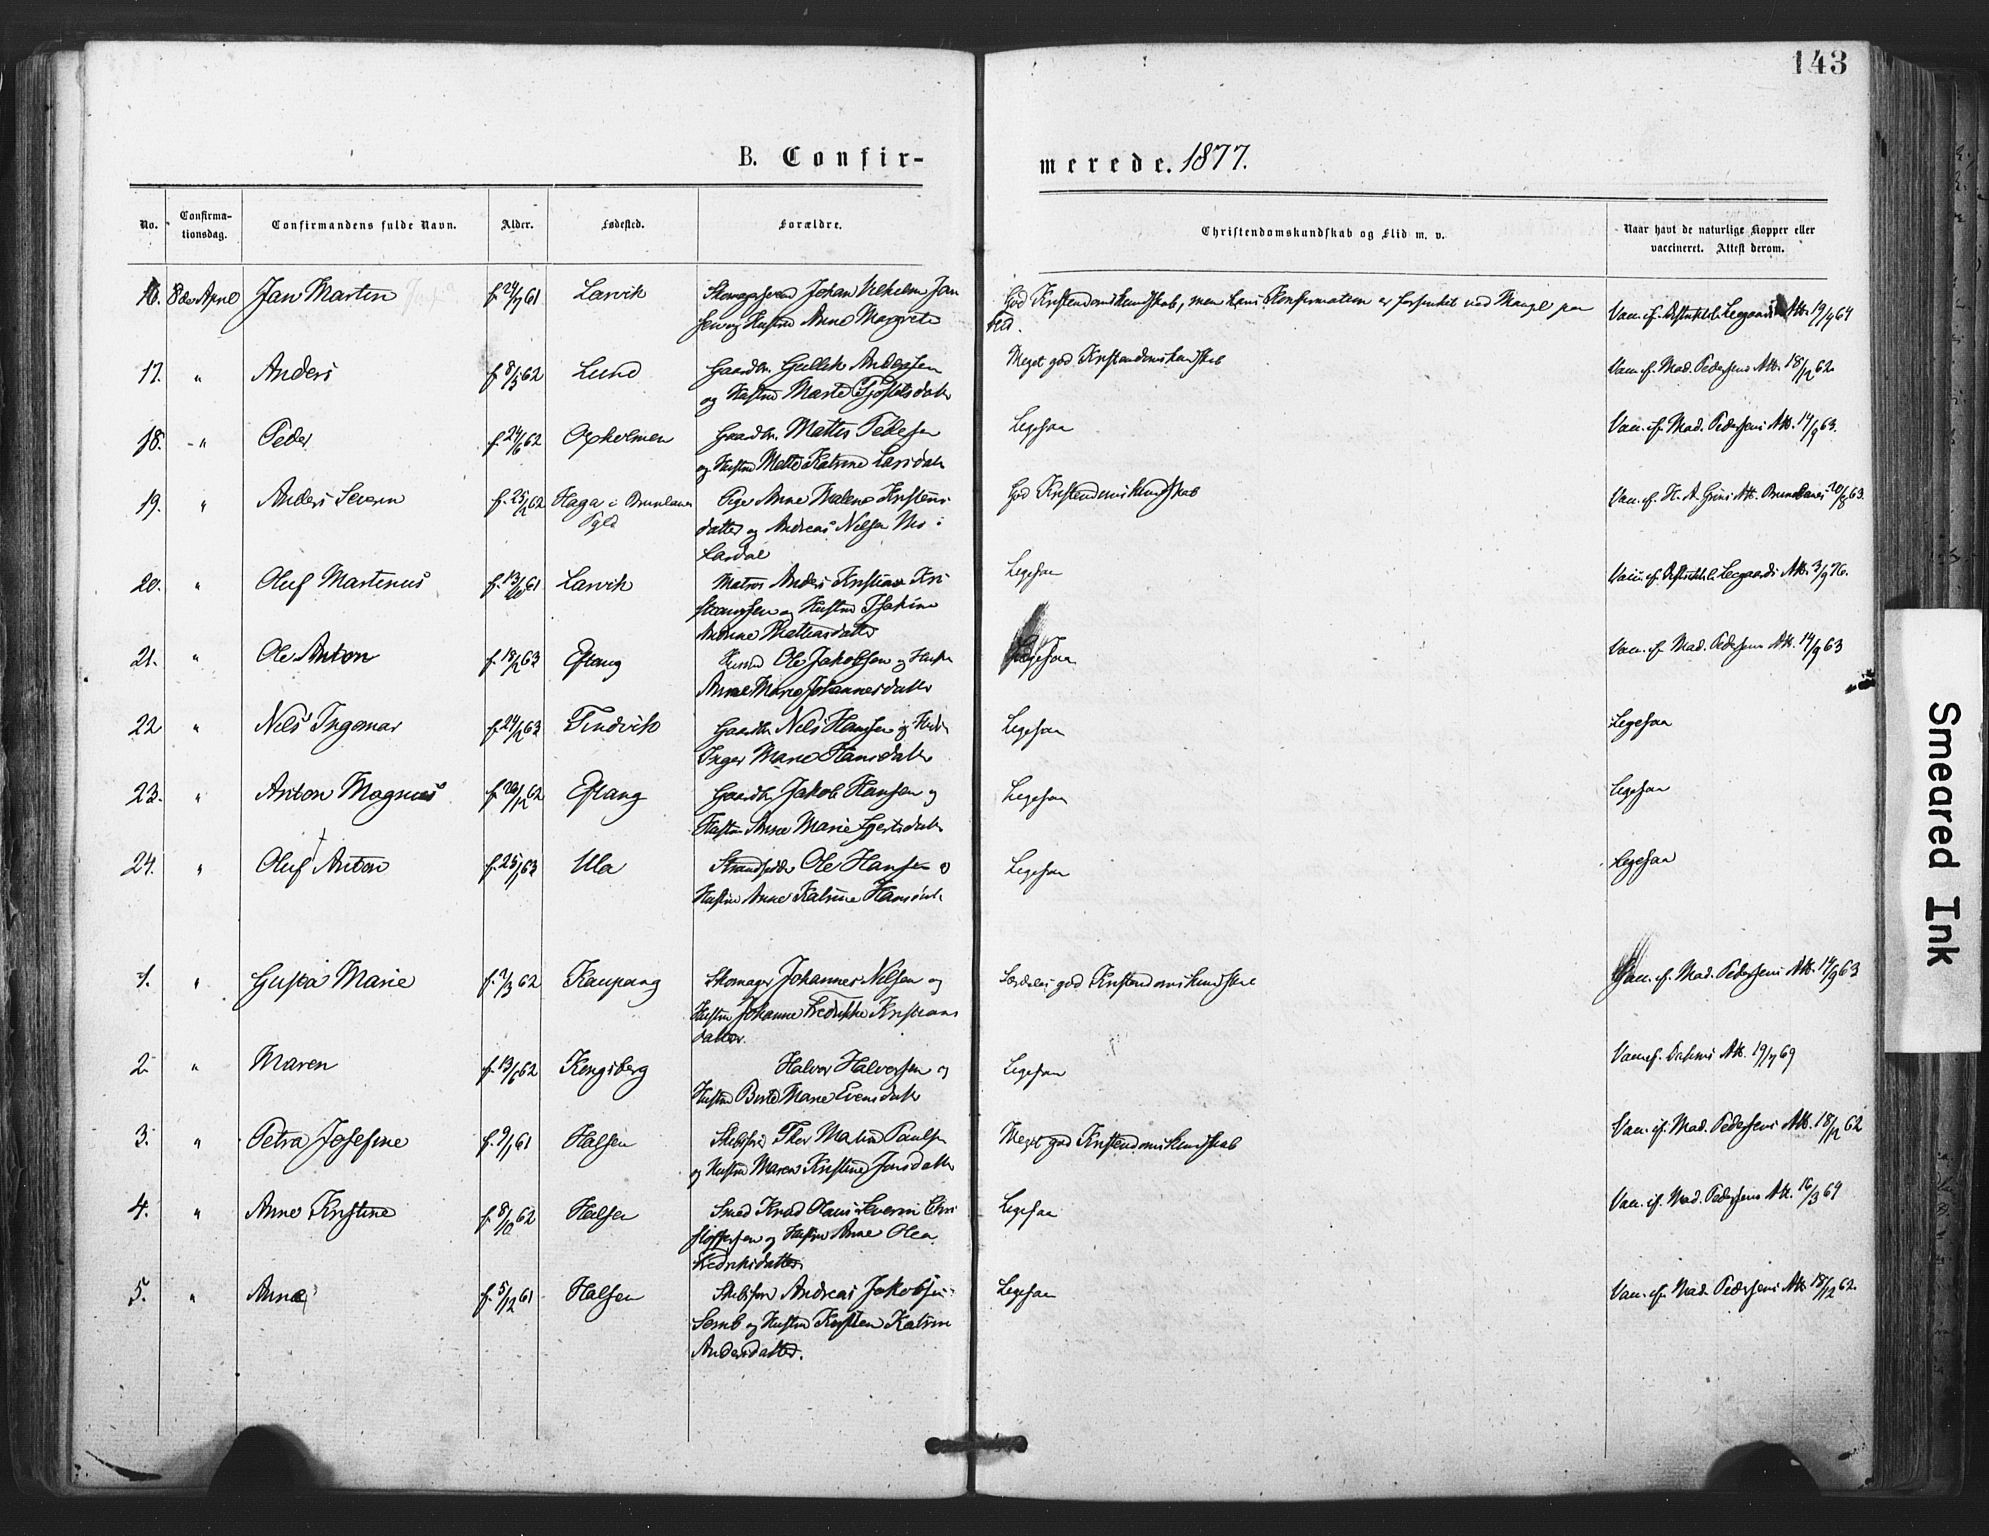 143
B. Confir-
merede. 1877.
No.
Confirma-
tionsdag.
Confirmandens fulde Navn.
Alder.
Fødested.
Forældre.
Christendomskundskab og Flid m. v.
Naar havt de naturlige Kopper eller
vaccineret. Attest derom.
16. 8de April Jan Martin f. 24/7 61 Larvik Johan Vilhelm Jan
sen og Hustru Anne Margrete
God Kristendomskundskab, men hans Konfirmation er forsinket ved Mangel paa
Flid.
Vac. ef. Leegaards Att. 19/7 64
17. " Anders f. 8/5 62 Lund Gaardbr. Gullik Anderssen
og Hustru Marte
Meget god Kristendomskundskab
Vac. ef. Mad. Pedersens Att. 18/12 62.
18. " Peder f. 24/6 62 Oxholmen Gaardbr. Mattis Pedersen
og Hustru Mette Katrine Larsdatter
Ligesaa
Vac. ef. Mad. Pedersens Att. 14/9 63.
19. " Anders Severin f. 25/2 62 Haga i Brunlanes
Pgld
Pige Anne Malene Kristens
datter og Andreas Nilsen Mo i
Lardal
God Kristendomskundskab
Vac. ef. H. A. Grøns Att. Brunlanes 20/8 63.
20. " Oluf Martinus f. 13/10 61 Larvik Matros Anders Kristian Kri
stiansen og Hustru
Andrine Mathiasdatter
Ligesaa
Vac. ef. Leegaards Att. 3/9 76.
21. " Ole Anton f. 18/2 63 Eftang Husmd Ole Jakobsen og Hustru
Anne Marie Johannesdatter
Ligesaa
Vac. ef. Mad. Pedersens Att. 14/9 63
22 " Nils Ingemar f. 24/2 63 Tindvik Gaardbr. Nils Hansen og Hustru
Inger Marie Hansdatter
Ligesaa
Ligesaa
23. " Anton Magnus f. 26/12 62 Eftang Gaardbr. Jakob Hansen og
Hustru Anne Marie
Ligesaa
Ligesaa
24. " Oluf Anton f. 25/1 63 Ula Strandsidder Ole Hansen og
Hustru Anne Katrine
Ligesaa
Ligesaa
1. " Gusta Marie f. 7/3 62 Kaupang Skomager Johannes Nilsen og
Hustru Johanne Fredrikke Kristians
datter.
Særdeles god Kristendomskundskab
Vac. ef. Mad. Pedersens Att. 14/9 63
2 " Maren f. 13/6 62 Kongsberg Halvor Halvorsen og
Hustru Berte Marie Evensdatter
Ligesaa
Vac. ef. Dahls Att. 19/7 69
3. " Petra Josefine f. 9/1 61 Halsen Thor Paulsen
og Hustru Maren Kristine Jansdatter
Meget god Kristendomskundskab
Vac. ef. Mad. Pedersens Att. 18/12 62
4. " Anne Kristine f. 8/10 62 Halsen Smed Knud Hans Severin Chri
stoffersen og Hustru Anne Olea
Fredriksdatter
Ligesaa
Vac. ef. Mad. Pedersens Att. 16/3 64
5. " Anne f. 5/12 61 Halsen Andreas Jakobsen
Semb og Hustru Kirsten Katrine
Andersdatter.
Ligesaa
Vac. ef. Mad. Pedersens Att. 18/12 62.
Smeared Ink